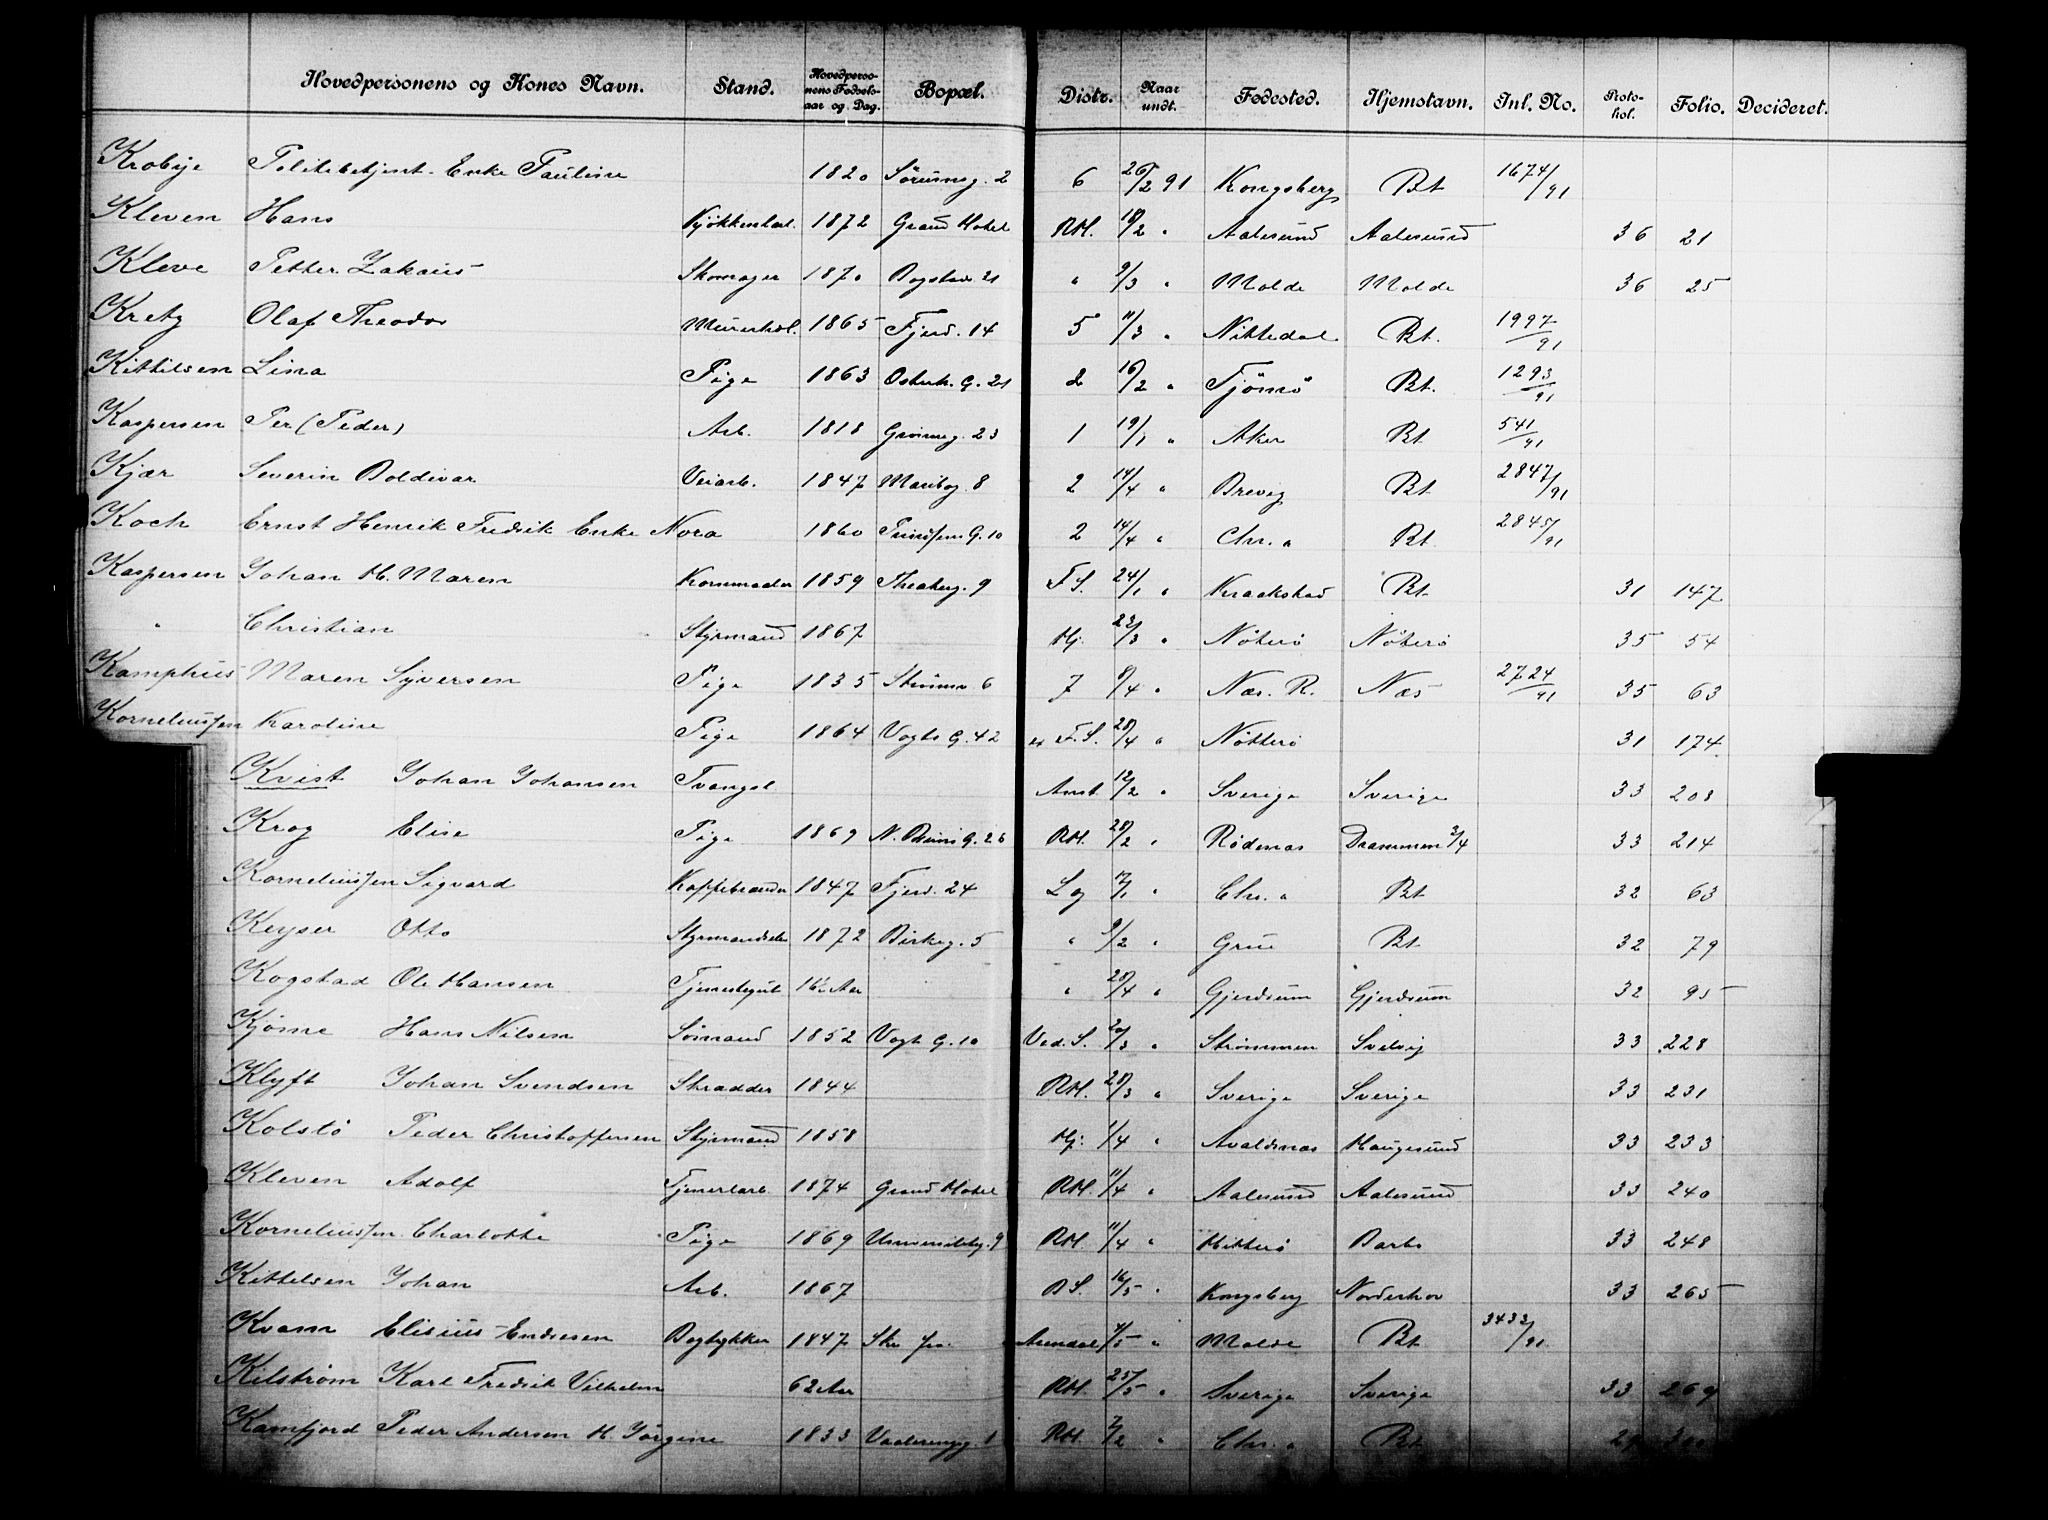 Hovedpersonens og Kones Navn. Stand. Hovedpersonens Fødselsaar og Dag. Bopæl. Distr. Naar undt. Fødested. Hjemstavn. Inl. No. Protokol. Folio. Decideret.
Krobye Politibetjent Enke Pauline 1820 2 6 26/2 91 Kongsberg Bt 1674/91
Kleven Hans 1872 Grand Hotel RH. 18/2 " Aalesund Aalesund 36 21
Kleve Petter Zakarias Skomager 1870 Bogstav. 21 " 9/3 " Molde Molde 36 25
Kretz Olaf Theodor 1865 Fjerd. 14 5 11/3 " Nittedal Bt. 1997/91
Kittilsen Lina Pige 1863 Osterh. G. 21 2 16/2 " Tjømø Bt. 1293/91
Kaspersen Per (Peder) Arb. 1818 23 1 19/1 " Aker Bt 541/91
Kjær Severin Boldivar Veiarb. 1847 Maribog. 8 2 14/4 " Brevig Bt 2847/91
Koch Ernst Henrik Fredrik Enke Nora 1860 Prinsens G. 10 2 14/4 " Chr.a Bt. 2845/91
Kaspersen Johan H. Maren 1859 9 F.S. 24/1 " Kraakstad Bt. 31 147
" Christian Styrmand 1867 Hj. 23/3 " Nøterø Nøterø 35 54
Kamphus Maren Syversen Pige 1835 6 7 9/4 " Næs. R. Næs 2724/91 35 63
Korneliussen Karoline Pige 1864 Vogts G. 42 F.S. 28/4 " Nøtterø 31 174
Kvist Johan Johansen Tvangsl Amt 12/2 " Sverige Sverige 33 208
Krog Elise Pige 1869 26 RH. 28/2 " Rødenæs Drammen 3/4 33 214
Korneliussen Sigvard Kaffebrænder 1847 Fjerd. 24 Lg " Chr.a Bt 32 63
Keyser Otto 1872 Birkeg. 5 " 9/2 " Grue Bt 32 79
Kogstad Ole Hansen Tjenestegut 16 Aar " 28/4 " Gjerdrum Gjerdrum 32 95
Kjøme Hans Nilsen Sømand 1852 Vogt G. 10 Ved. S. 20/3 " Strømmen Svelvig 33 228
Klyft Johan Svendsen Skrædder 1844 RH. 28/3 " Sverige Sverige 33 231
Kolstø Peder Christoffersen Styrmand 1858 Hj. 1/4 " Avaldsnæs Haugesund 33 233
Kleven Adolf 1874 Grand Hotel RH. 11/4 " Aalesund Aalesund 33 240
Korneliussen Charlotte Pige 1869 Universitetsg. 9 RH. 11/4 " Hitterø Barbo 33 248
Kittelsen Johan Arb. 1867 BS. 16/5 " Kongsberg Norderhov 33 265
Kvam Elisius Endresen Bogtrykker 1847 Arendal 4/5 " Molde Bt 3433/91
Kilstrøm Karl Fredrik Vilhelm 62 Aar RH. 25/5 " Sverige Sverige 33 269
Kamfjord Peder Andersen H. Jørgine 1833 Vaalerengg. 1 RH. 7/2 " Chr.a Bt